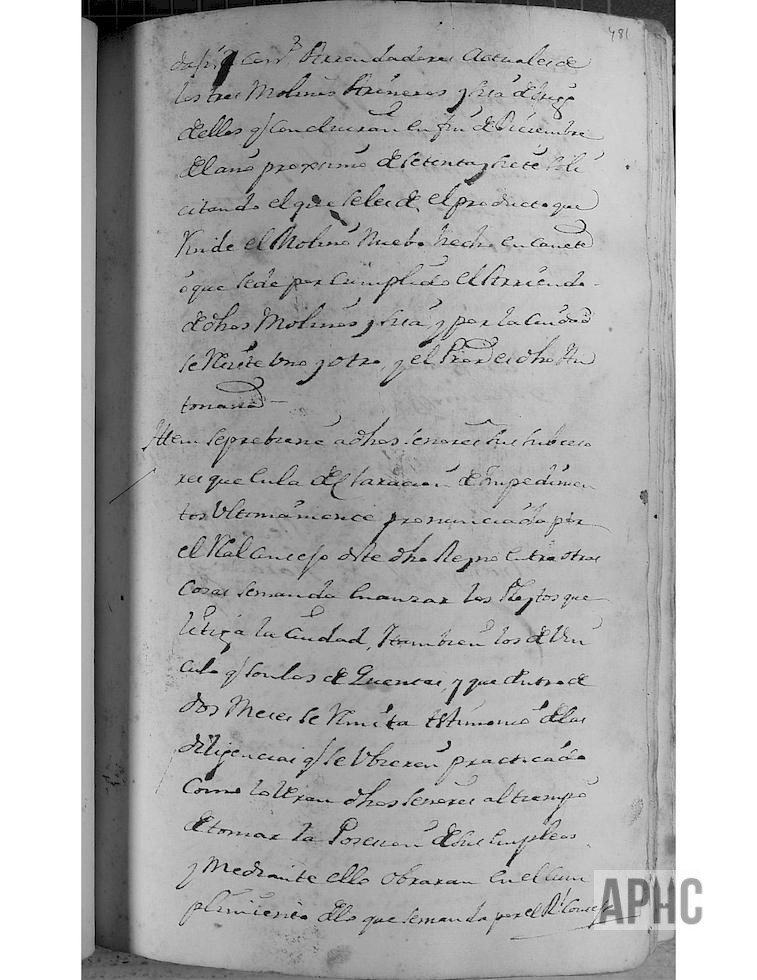 481
Arrendadores Actuales de
los tres Molinos Arineros y hrã de
dellos q̃ Concluiran en fin de Diciembre
del ano proximo de Setenta y Siete Soli
citando el que se les de, el producto que
Rinde el Molino Nuebo hecho en Canete
ò que se de por Cumplido el Arriendo
de dhos Molinos y hrã, y por la Ciudad
se Resiste Uno y otro, y el es dho An
tonana
Ittem se prebiene a dhos Senores sus subceso
res que en la declaracion de Impedimen
tos Ultimamente pronunciada por
el Rl Consejo deste dho Reyno entre otras
Cosas se manda abanzar los Pleytos que
litiga la Ciudad, y tambien los de Vin
culo q̃ son los de Quentas, y que dentro de
dos Meses se Remita testimonio de las
diligencias q̃ se Ubieren practicado
Como lo Veran dhos Senores al tiempo
de tomar la Posesion de sus Empleos
y Mediante ello obraran en el Cum
plimiento de lo que se manda por el Rl Consejo
APHC